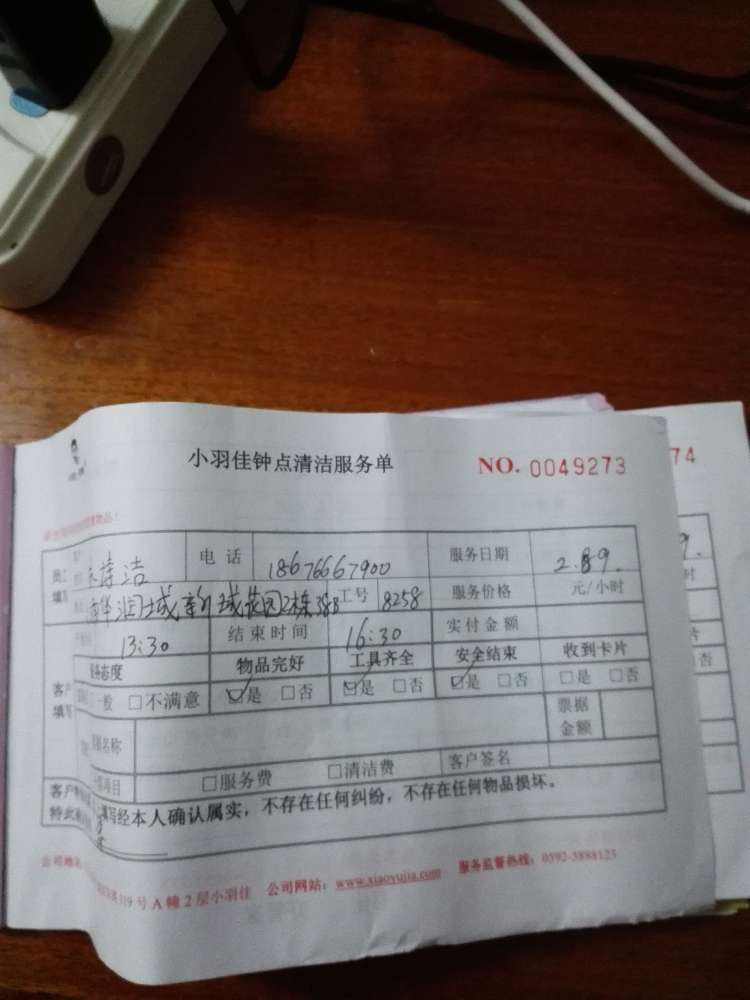 小羽佳钟点清洁服务单 NO. 0049273 74
电话 18676667900 服务日期 2.89. 9.
填写 华润城新城花园2栋38B 工号 8258 服务价格 元/小时 时
13:30 结束时间 16:30 实付金额
服务态度 物品完好 工具齐全 安全结束 收到卡片
客户 填写 □一般 □不满意 ☑是 □否 ☑是 □否 ☑是 □否 □是 □否 否
名称 票据金额
项目 □服务费 □清洁费 客户签名
客户
特此 填写经本人确认属实，不存在任何纠纷，不存在任何物品损坏。
公司地址 319号A幢2层小羽佳 公司网站：www.xiaoyujia.com 服务监督热线：0592-5888125